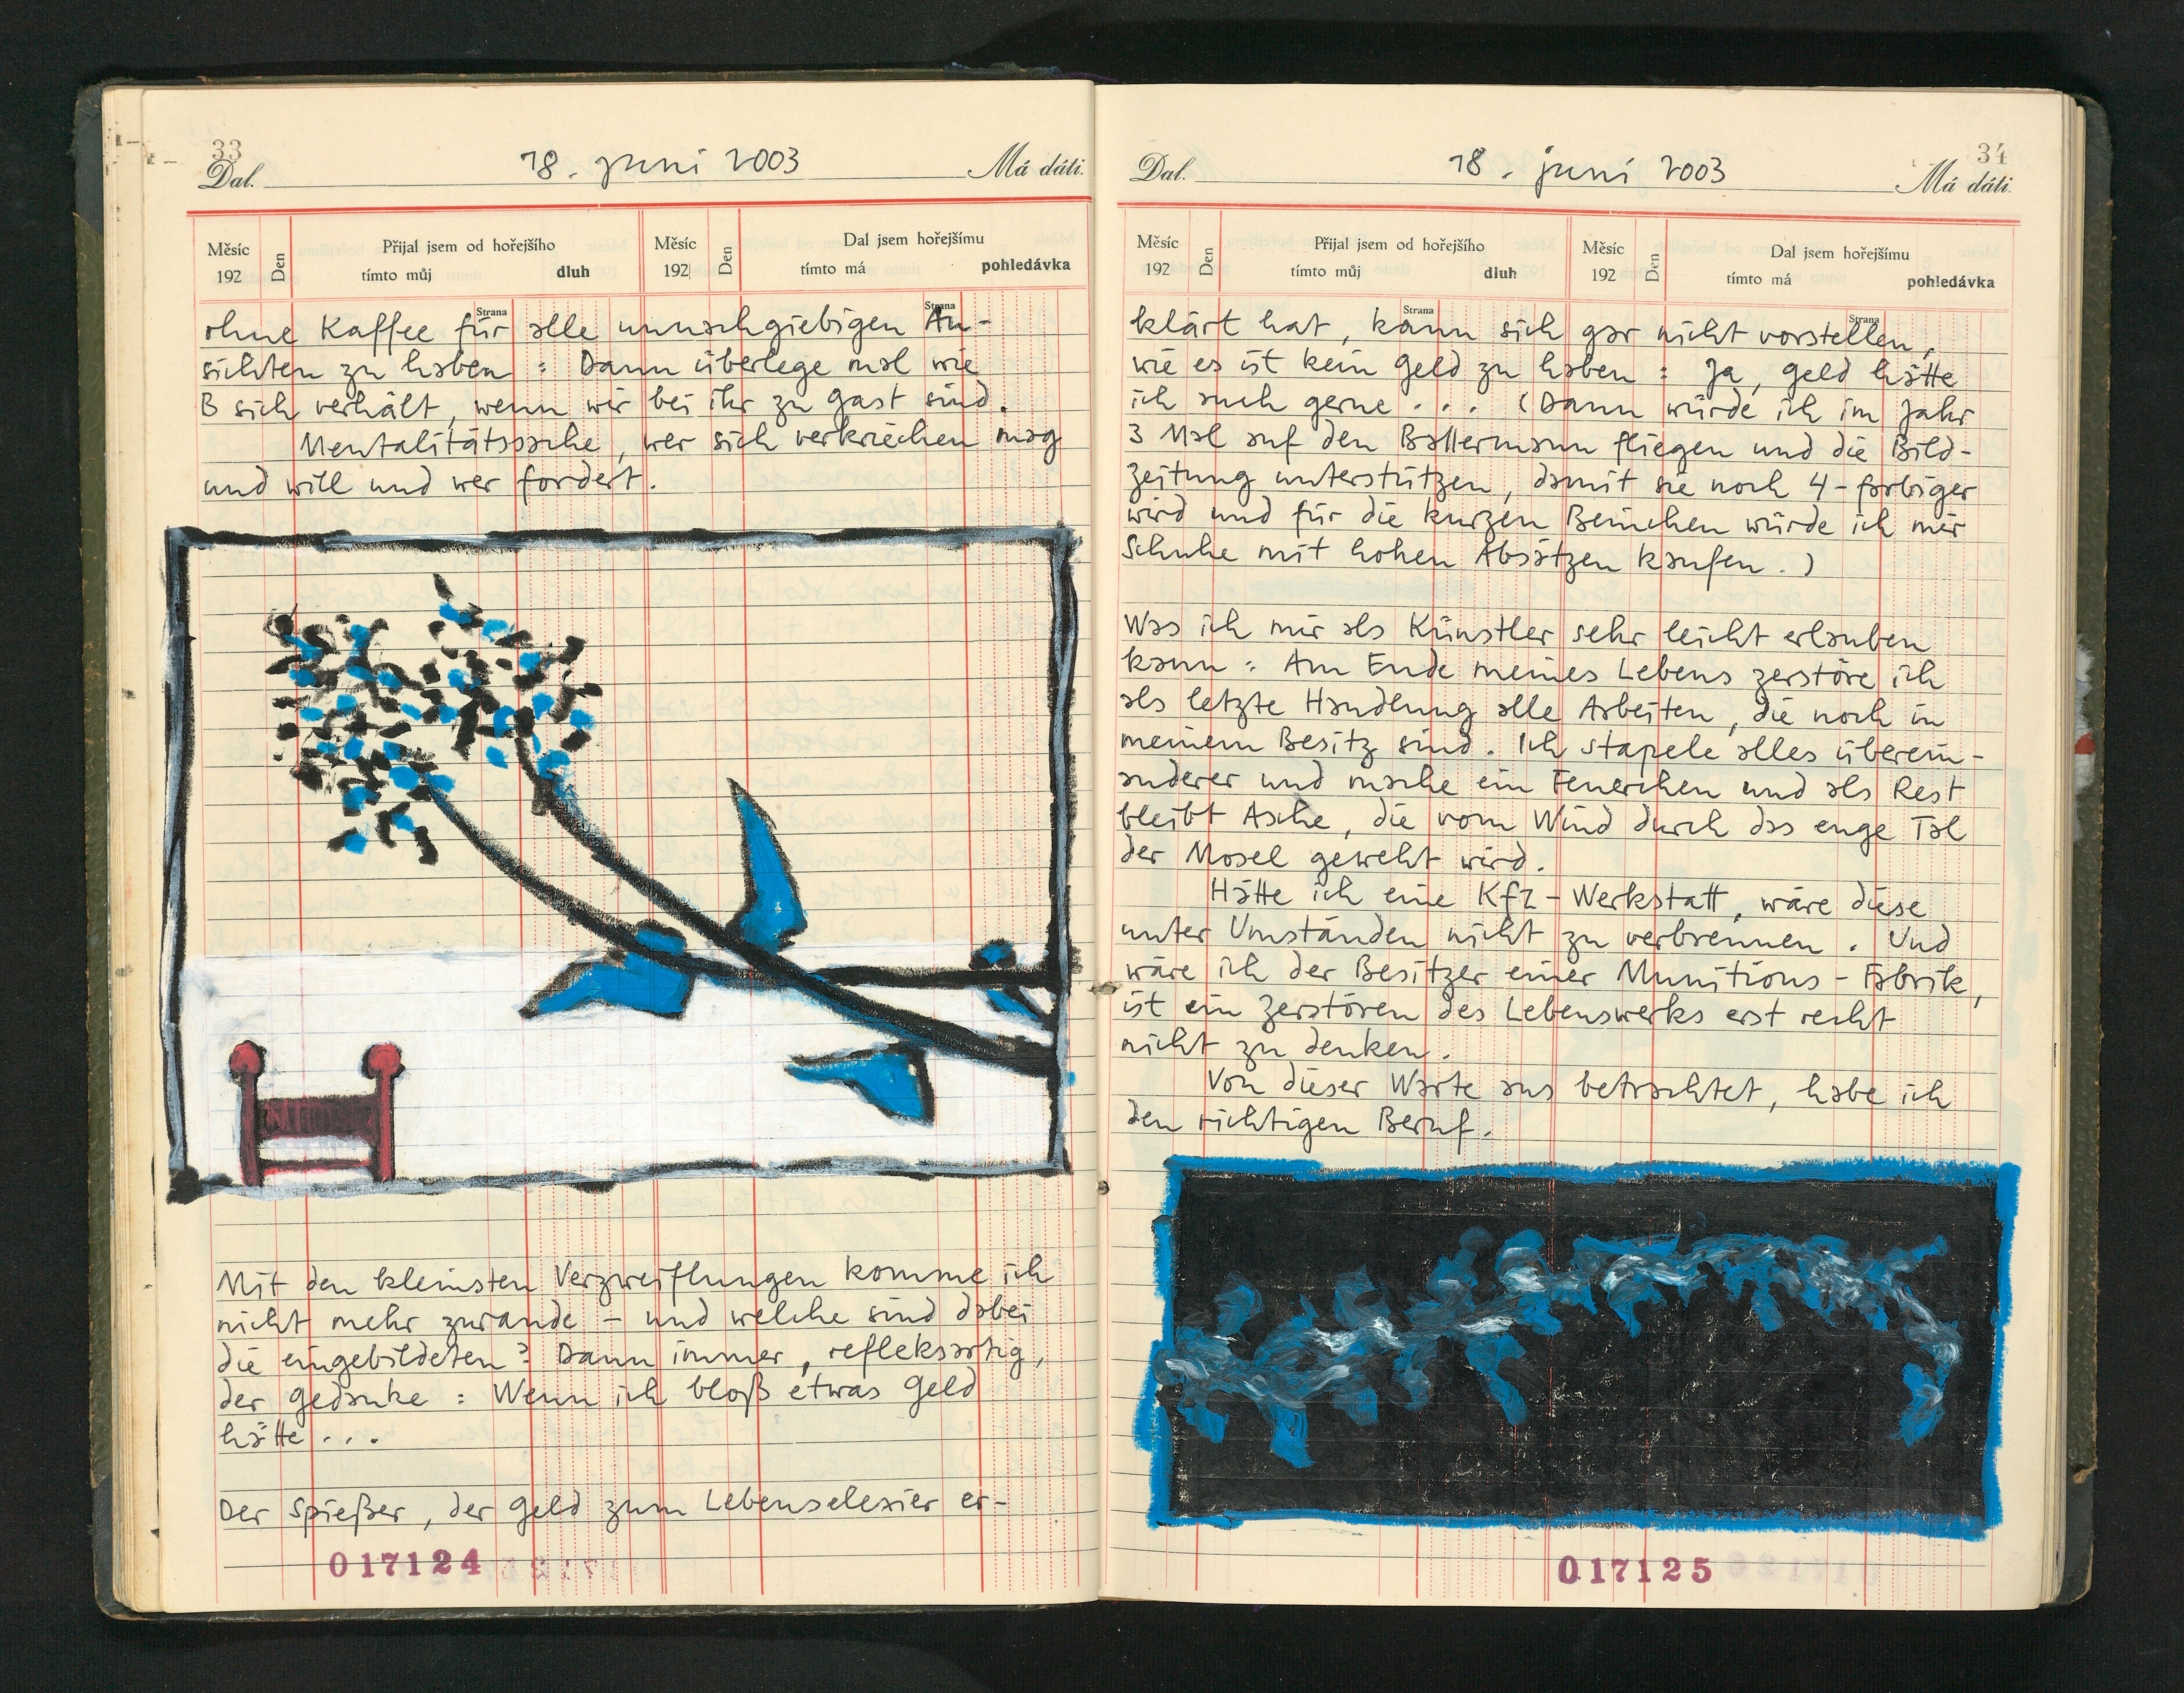 33
Dal.
18. juni 2003
Má dáti.
Měsíc
192
Den
Přijal jsem od hořejšího
tímto můj
dluh
Měsíc
192
Den
Dal jsem hořejšímu
tímto má
pohledávka
Strana
Strana
ohne Kaffee für alle unnachgiebigen An-
sichten zu haben : Dann überlege mal wie
B sich verhält, wenn wir bei ihr zu Gast sind.
Mentalitätssache, wer sich verkriechen mag
und will und wer fordert.
Mit den kleinsten Verzweiflungen komme ich
nicht mehr zurande – und welche sind dabei
die eingebildeten? Dann immer, refleksartig,
der Gedanke : Wenn ich bloß etwas Geld
hätte...
Der Spießer, der Geld zum Lebenselexier er-
017124
34
Dal.
18. juni 2003
Má dáti.
Měsíc
192
Den
Přijal jsem od hořejšího
tímto můj
dluh
Měsíc
192
Den
Dal jsem hořejšímu
tímto má
pohledávka
Strana
Strana
klärt hat, kann sich gar nicht vorstellen,
wie es ist kein Geld zu haben : Ja, Geld hätte
ich auch gerne... (Dann würde ich im Jahr
3 Mal auf den Ballermann fliegen und die Bild-
zeitung unterstützen, damit sie noch 4-farbiger
wird und für die kurzen Beinchen würde ich mir
Schuhe mit hohen Absätzen kaufen.)
Was ich mir als Künstler sehr leicht erlauben
kann : Am Ende meines Lebens zerstöre ich
als letzte Handlung alle Arbeiten, die noch in
meinem Besitz sind. Ich stapele alles überein-
anderer und mache ein Feuerchen und als Rest
bleibt Asche, die vom Wind durch das enge Tal
der Mosel geweht wird.
Hätte ich eine Kfz-Werkstatt, wäre diese
unter Umständen nicht zu verbrennen. Und
wäre ich der Besitzer einer Munitions-Fabrik,
ist ein zerstören des Lebenswerks erst recht
nicht zu denken.
Von dieser Warte aus betrachtet, habe ich
den richtigen Beruf.
017125